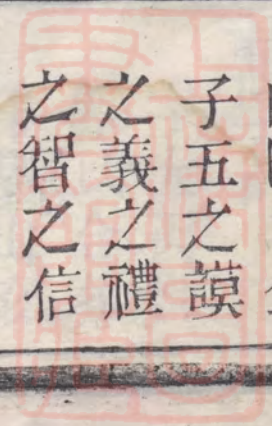 子五之謨
之義之禮
之智之信